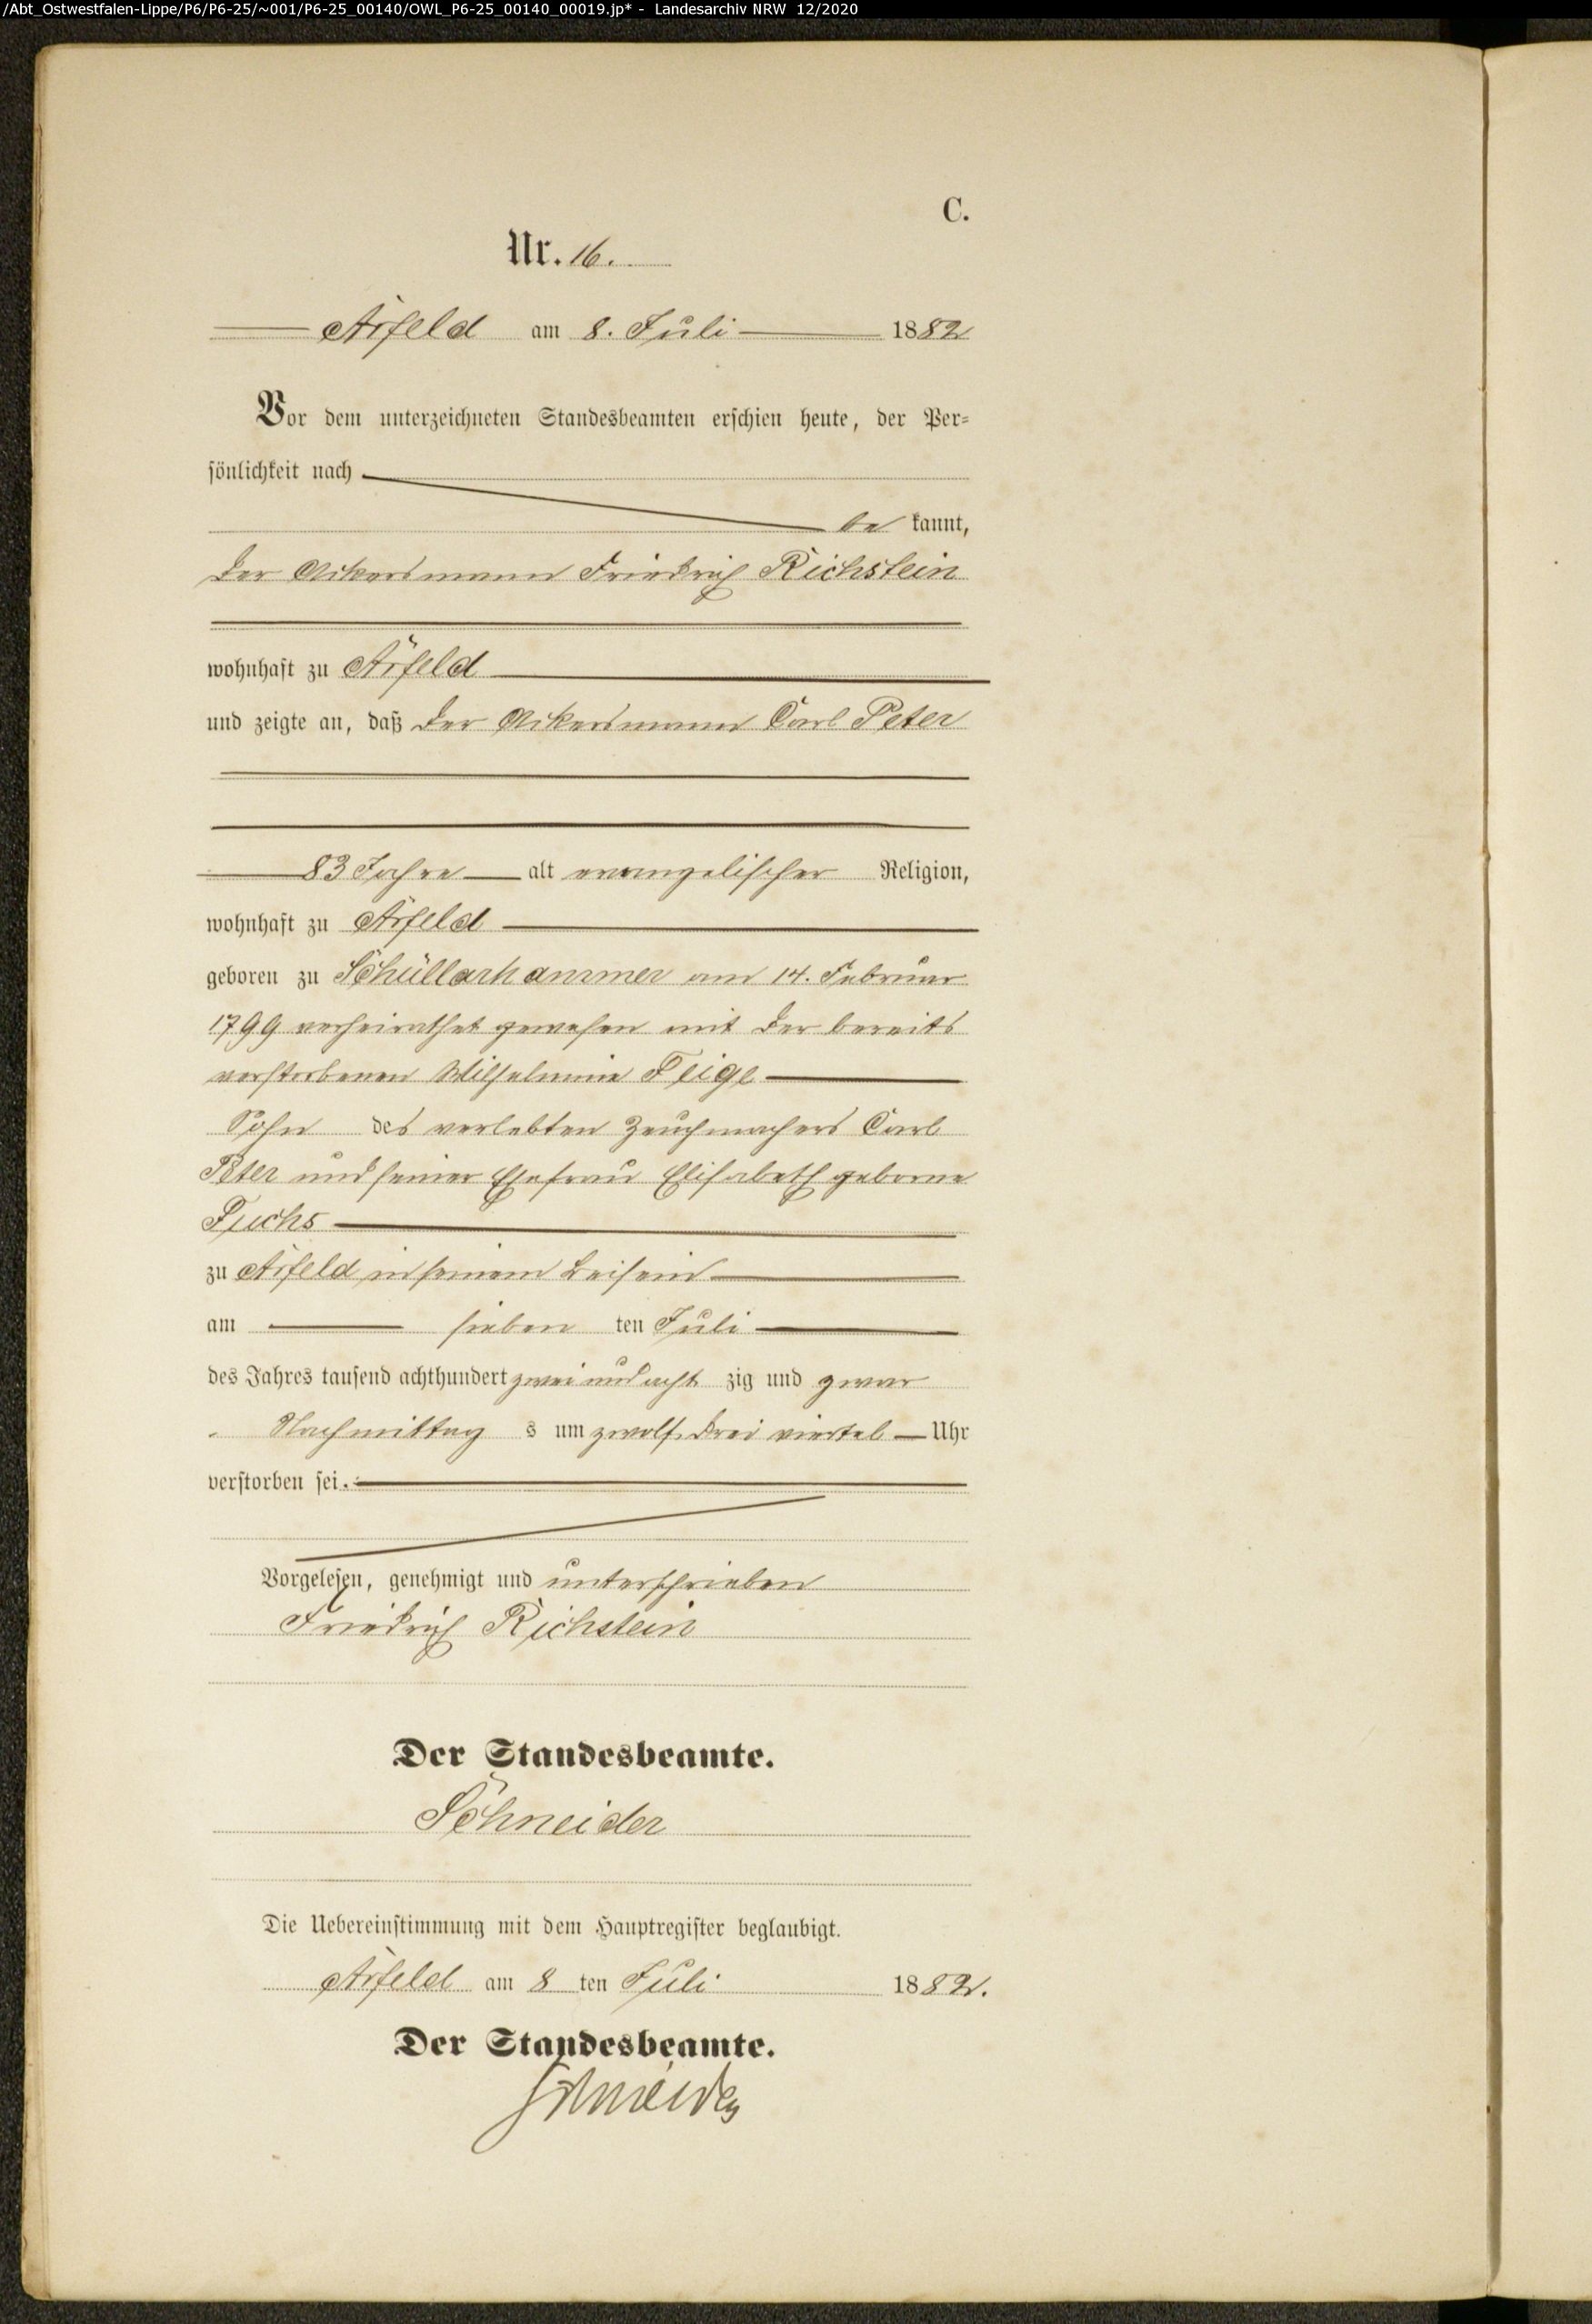 /Abt_Ostwestfalen-Lippe/P6/P6-25/~001/P6-25_00140/OWL_P6-25_00140_00019.jp* - Landesarchiv NRW 12/2020
C.
Nr. 16.
Arfeld am 8. Juli 1882
Vor dem unterzeichneten Standesbeamten erschien heute, der Per-
sönlichkeit nach
be kannt,
der Ackersmann Friedrich Richstein
wohnhaft zu Arfeld
und zeigte an, daß der Ackersmann Carl Peter
83 Jahre alt evangelischer Religion,
wohnhaft zu Arfeld
geboren zu Schüllarhammer am 14. Februar
1799 verheirathet gewesen mit der bereits
verstorbenen Wilhelmine Feige
Sohn des verlebten Zeuchmachers Carl
Peter und seiner Ehefrau Elisabeth geborne
Fuchs
zu Arfeld in seinem Beisein
am sieben ten Juli
des Jahres tausend achthundert zwei und acht zig und zwar
Nachmittag s um zwölf drei viertel Uhr
verstorben sei.
Vorgelesen, genehmigt und unterschrieben
Friedrich Richstein
Der Standesbeamte.
Schneider
Die Uebereinstimmung mit dem Hauptregister beglaubigt.
Arfeld am 8 ten Juli 1882.
Der Standesbeamte.
Schneider